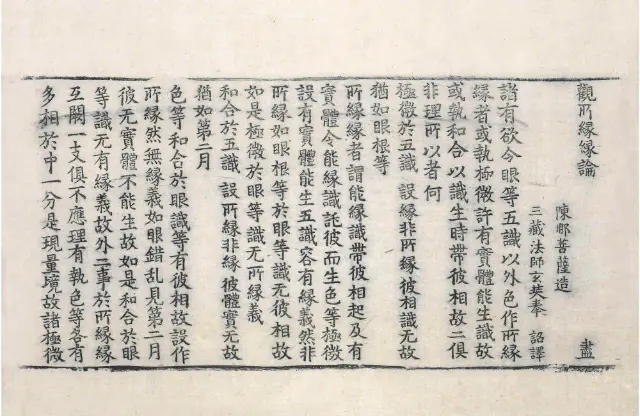 觀所縁縁論 盡
陳那菩薩造
三藏法師玄奘奉 詔譯
諸有欲令眼等五識以外色作所縁
縁者或執極微許有實體能生識故
或執和合以識生時帶彼相故二俱
非理所以者何
極微於五識 設縁非所縁彼相識无故
猶如眼根等
所縁縁者謂能縁識帶彼相起及有
實體令能縁識託彼而生色等極微
設有實體能生五識容有縁義然非
所縁如眼根等於眼等識无彼相故
如是極微於眼等識无所縁義
和合於五識 設所縁非縁彼體實无故
猶如第二月
色等和合於眼識等有彼相故設作
所縁然無縁義如眼錯乱見第二月
彼无實體不能生故如是和合於眼
等識无有縁義故外二事於所縁縁
互闕一支俱不應理有執色等各有
多相於中一分是現量境故諸極微